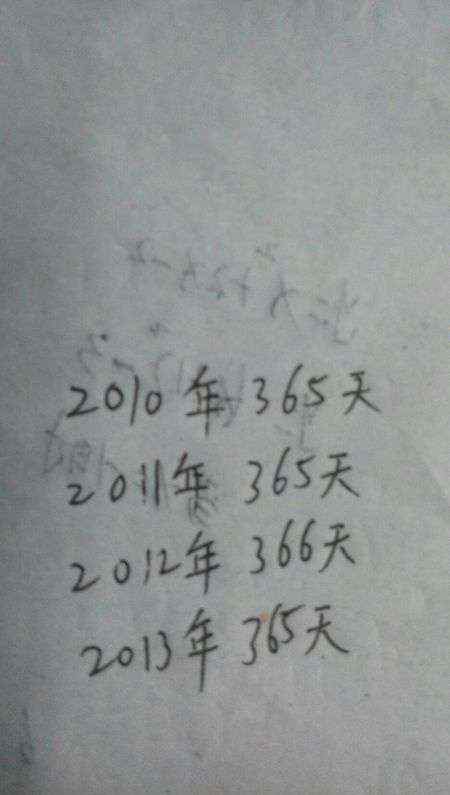 2010年 365天
2011年 365天
2012年 366天
2013年 365天